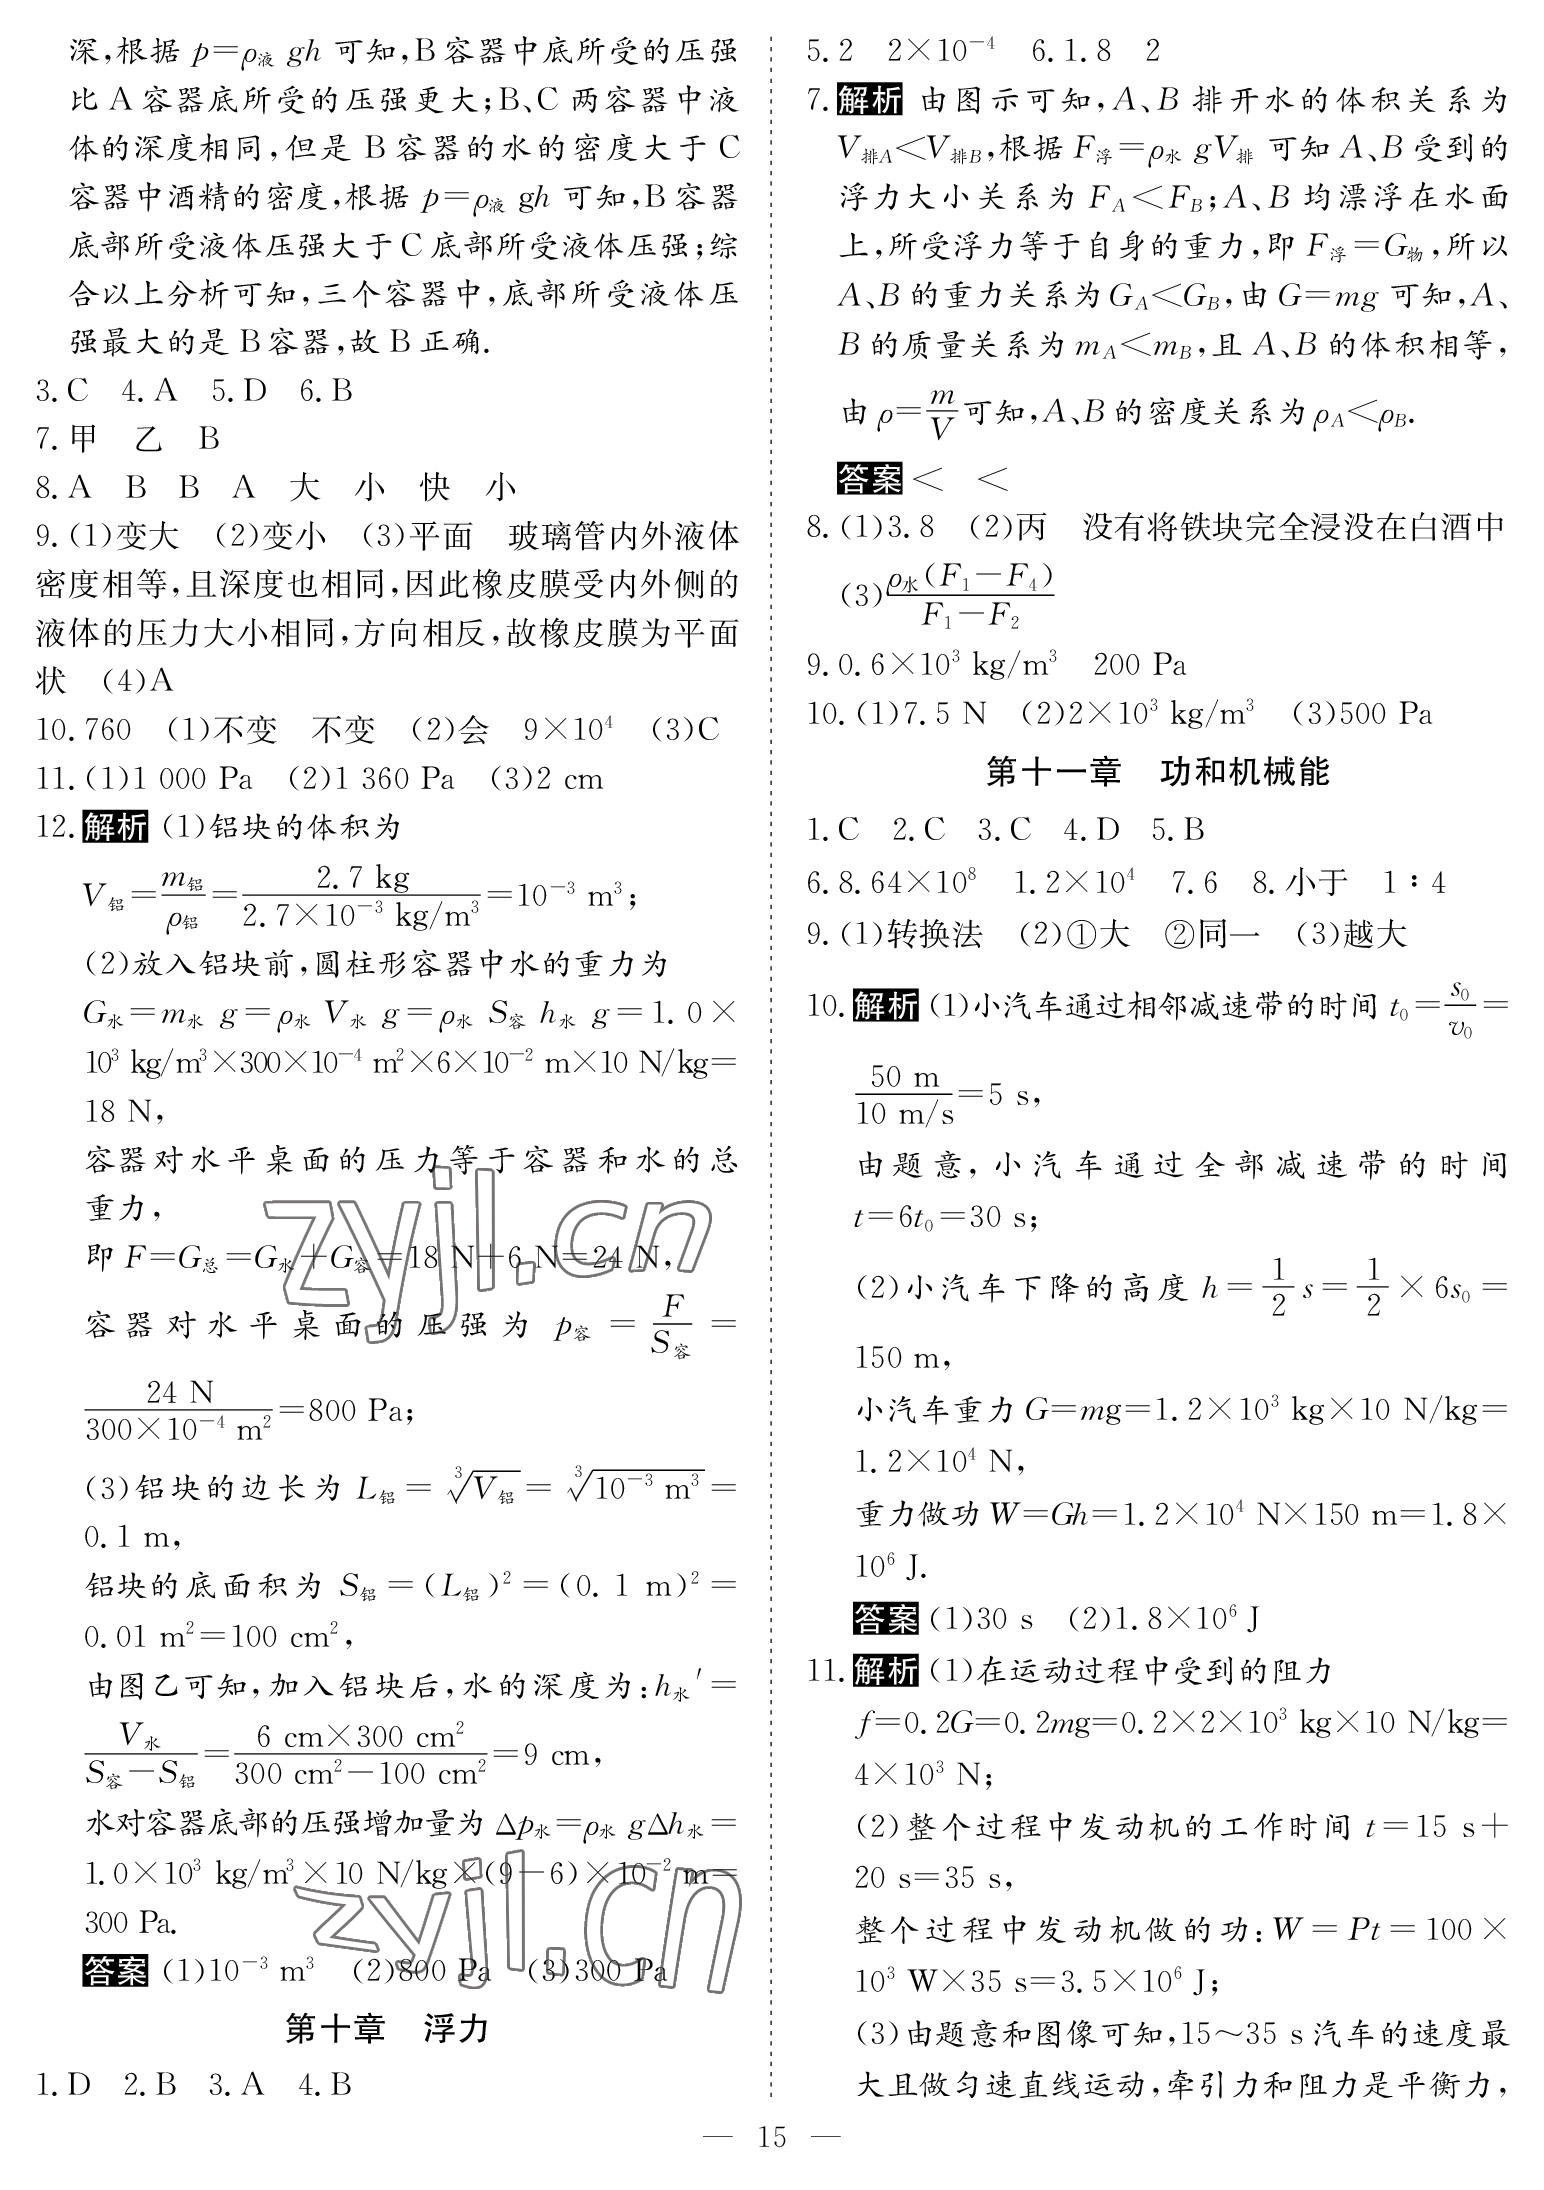 深,根据 p=ρ液 gh 可知,B容器中底所受的压强
比A容器底所受的压强更大;B、C两容器中液
体的深度相同,但是 B 容器的水的密度大于 C
容器中酒精的密度,根据 p=ρ液 gh 可知,B容器
底部所受液体压强大于C底部所受液体压强;综
合以上分析可知,三个容器中,底部所受液体压
强最大的是 B容器,故 B正确.
3.C 4.A 5.D 6.B
7.甲 乙 B
8.A B B A 大 小 快 小
9.(1)变大 (2)变小 (3)平面 玻璃管内外液体
密度相等,且深度也相同,因此橡皮膜受内外侧的
液体的压力大小相同,方向相反,故橡皮膜为平面
状 (4)A
10.760 (1)不变 不变 (2)会 9×10⁴ (3)C
11.(1)1 000 Pa (2)1 360 Pa (3)2 cm
12.解析 (1)铝块的体积为
V铝=m铝/ρ铝=2.7 kg/(2.7×10⁻³ kg/m³)=10⁻³ m³;
(2)放入铝块前,圆柱形容器中水的重力为
G水=m水 g=ρ水 V水 g=ρ水 S容 h水 g=1.0×
10³ kg/m³×300×10⁻⁴ m²×6×10⁻² m×10 N/kg=
18 N,
容器对水平桌面的压力等于容器和水的总
重力,
即 F=G总=G水+G容=18 N+6 N=24 N,
容器对水平桌面的压强为 p容=F/S容=
24 N/(300×10⁻⁴ m²)=800 Pa;
(3)铝块的边长为 L铝=∛V铝=∛(10⁻³ m³)=
0.1 m,
铝块的底面积为 S铝=(L铝)²=(0.1 m)²=
0.01 m²=100 cm²,
由图乙可知,加入铝块后,水的深度为:h水′=
V水/(S容-S铝)=(6 cm×300 cm²)/(300 cm²-100 cm²)=9 cm,
水对容器底部的压强增加量为 Δp水=ρ水 gΔh水=
1.0×10³ kg/m³×10 N/kg×(9-6)×10⁻² m=
300 Pa.
答案 (1)10⁻³ m³ (2)800 Pa (3)300 Pa
第十章 浮力
1.D 2.B 3.A 4.B
5.2 2×10⁻⁴ 6.1.8 2
7.解析 由图示可知,A、B排开水的体积关系为
V排A<V排B,根据 F浮=ρ水 gV排 可知 A、B受到的
浮力大小关系为 F_A<F_B;A、B 均漂浮在水面
上,所受浮力等于自身的重力,即 F浮=G物,所以
A、B的重力关系为G_A<G_B,由G=mg 可知,A、
B的质量关系为 m_A<m_B,且 A、B的体积相等,
由 ρ=m/V可知,A、B的密度关系为ρ_A<ρ_B.
答案 < <
8.(1)3.8 (2)丙 没有将铁块完全浸没在白酒中
(3)ρ水(F₁-F₄)/(F₁-F₂)
9.0.6×10³ kg/m³ 200 Pa
10.(1)7.5 N (2)2×10³ kg/m³ (3)500 Pa
第十一章 功和机械能
1.C 2.C 3.C 4.D 5.B
6.8.64×10⁸ 1.2×10⁴ 7.6 8.小于 1∶4
9.(1)转换法 (2)①大 ②同一 (3)越大
10.解析 (1)小汽车通过相邻减速带的时间 t₀=s₀/v₀=
50 m/(10 m/s)=5 s,
由题意,小汽车通过全部减速带的时间
t=6t₀=30 s;
(2)小汽车下降的高度 h=1/2 s=1/2×6s₀=
150 m,
小汽车重力 G=mg=1.2×10³ kg×10 N/kg=
1.2×10⁴ N,
重力做功 W=Gh=1.2×10⁴ N×150 m=1.8×
10⁶ J.
答案 (1)30 s (2)1.8×10⁶ J
11.解析 (1)在运动过程中受到的阻力
f=0.2G=0.2mg=0.2×2×10³ kg×10 N/kg=
4×10³ N;
(2)整个过程中发动机的工作时间 t=15 s+
20 s=35 s,
整个过程中发动机做的功:W=Pt=100×
10³ W×35 s=3.5×10⁶ J;
(3)由题意和图像可知,15~35 s汽车的速度最
大且做匀速直线运动,牵引力和阻力是平衡力,
— 15 —
zyjl.cn
zyjl.cn